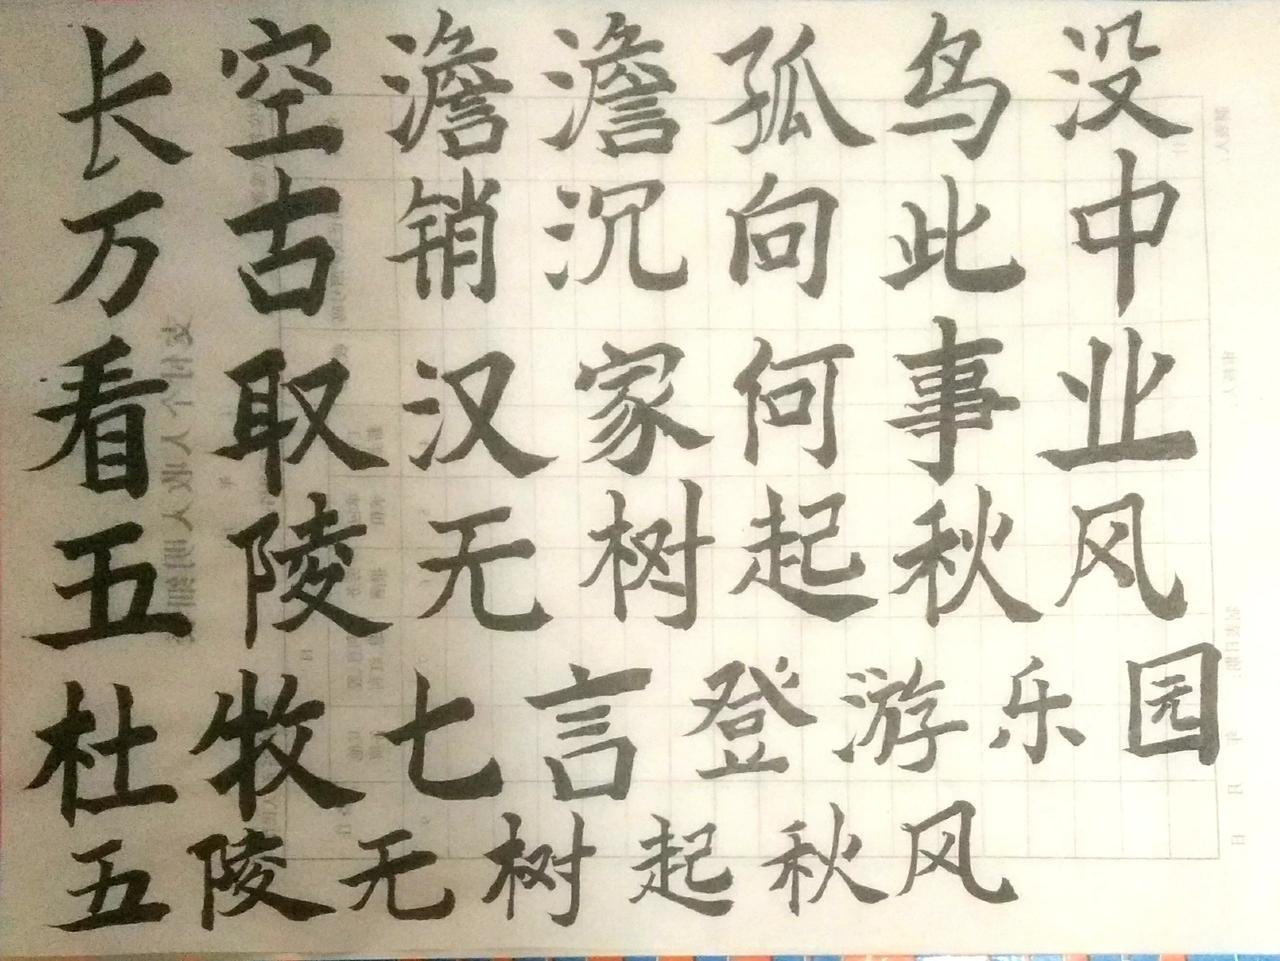 长空澹澹孤鸟没
万古销沉向此中
看取汉家何事业
五陵无树起秋风
杜牧七言登游乐园
五陵无树起秋风